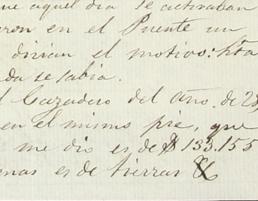 ue aquel dia se activaban
ron en el Puente un
divian el motivo: hta
da se sabia.
l Cazadero del año de 28,
en el mismo pie, que
me dio es de $ 133.155
enas es de tierras &